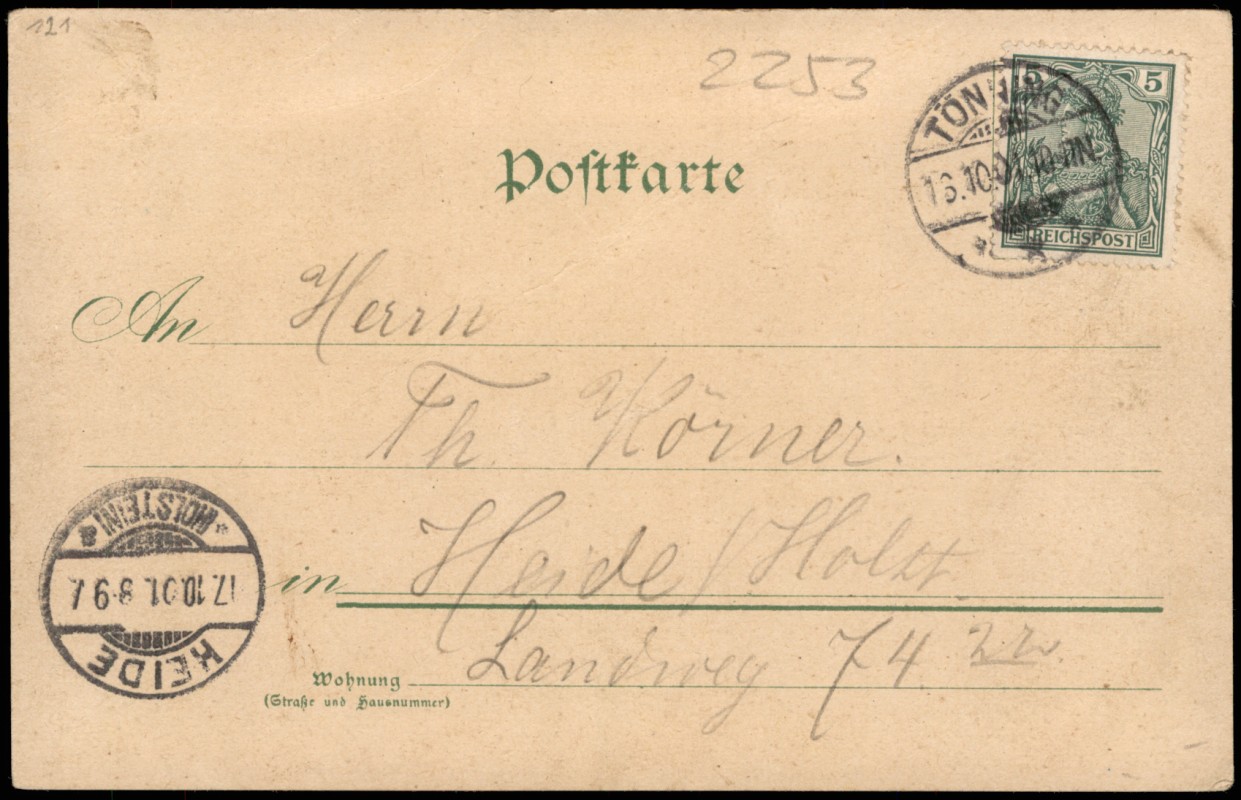 121
2253
5 5
REICHSPOST
TÖNNING
16.10.01.10-11N.
Postkarte
An Herrn
Th. Körner.
in Heide/Holst.
Landweg 74
Wohnung
(Straße und Hausnummer)
HEIDE
17.10.01. 8-9V.
*(HOLSTEIN) a